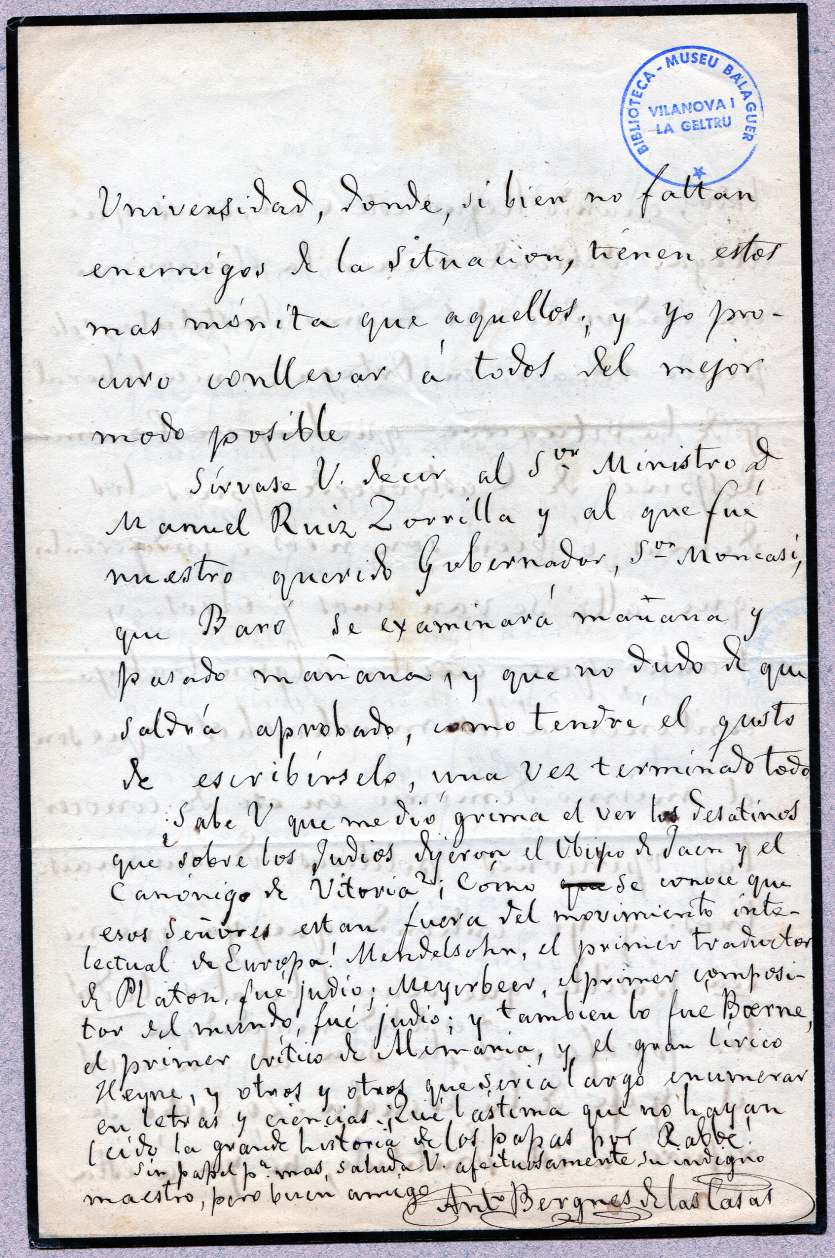 BIBLIOTECA - MUSEU BALAGUER
VILANOVA I
LA GELTRU
Universidad, donde, si bien no faltan
enemigos de la situacion, tienen estos
mas mónita que aquellos; y yo pro-
curo conllevar á todos del mejor
modo posible
Sírvase V. decir al Sor Ministro D
Manuel Ruiz Zorrilla y al que fué
nuestro querido Gobernador, Sor Moncasí,
que Baro se examinará mañana y
pasado mañana, y que no dudo de que
saldrá aprobado, como tendré el gusto
de escribírselo, una vez terminado todo
¿Sabe V que me dió grima el ver los desatinos
que sobre los Judios dijeron el Obispo de Jaen y el
Canónigo de Vitoria? ¡Cómo que se conoce que
esos señores estan fuera del movimiento inte-
lectual de Europa! Mendelsohn, el primer traductor
de Platon, fué judio; Meyerbeer, el primer composi-
tor del mundo, fué judio; y tambien lo fué Bœrne,
el primer crítico de Alemania, y el gran lírico
Heyne, y otros y otros que seria largo enumerar
en letras y ciencias. ¡Qué lástima que no hayan
leido la grande historia de los papas por Rabbe!
Sin papel pa mas, saluda V. afectuosamente su indigno
maestro, pero buen amigo
Anto Bergnes de las Casas